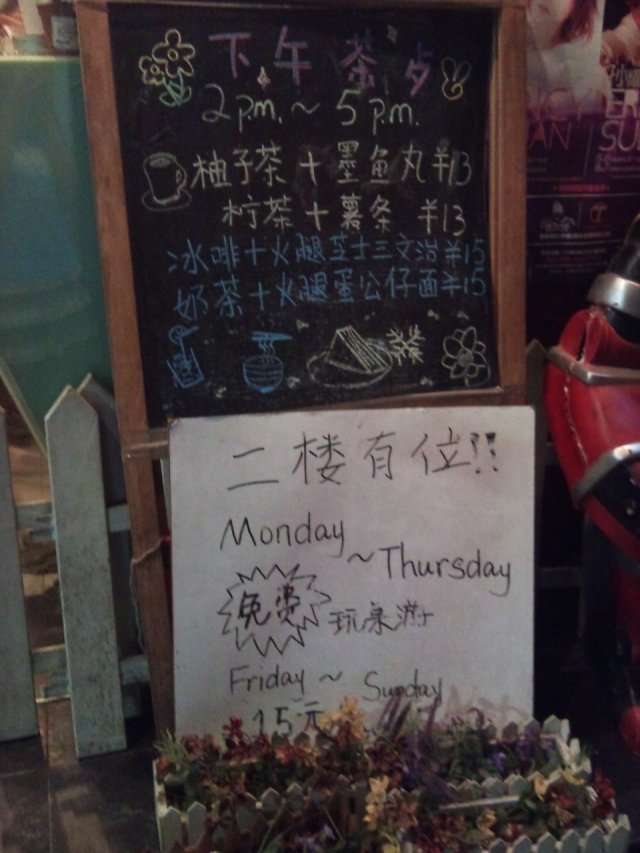 下午茶
2 p.m. ~ 5 p.m.
柚子茶 + 墨鱼丸 ¥13
柠茶 + 薯条 ¥13
冰啡 + 火腿芝士三文治 ¥15
奶茶 + 火腿蛋公仔面 ¥15
二楼有位!!
Monday
~ Thursday
免费 玩桌游
Friday ~ Sunday
15元